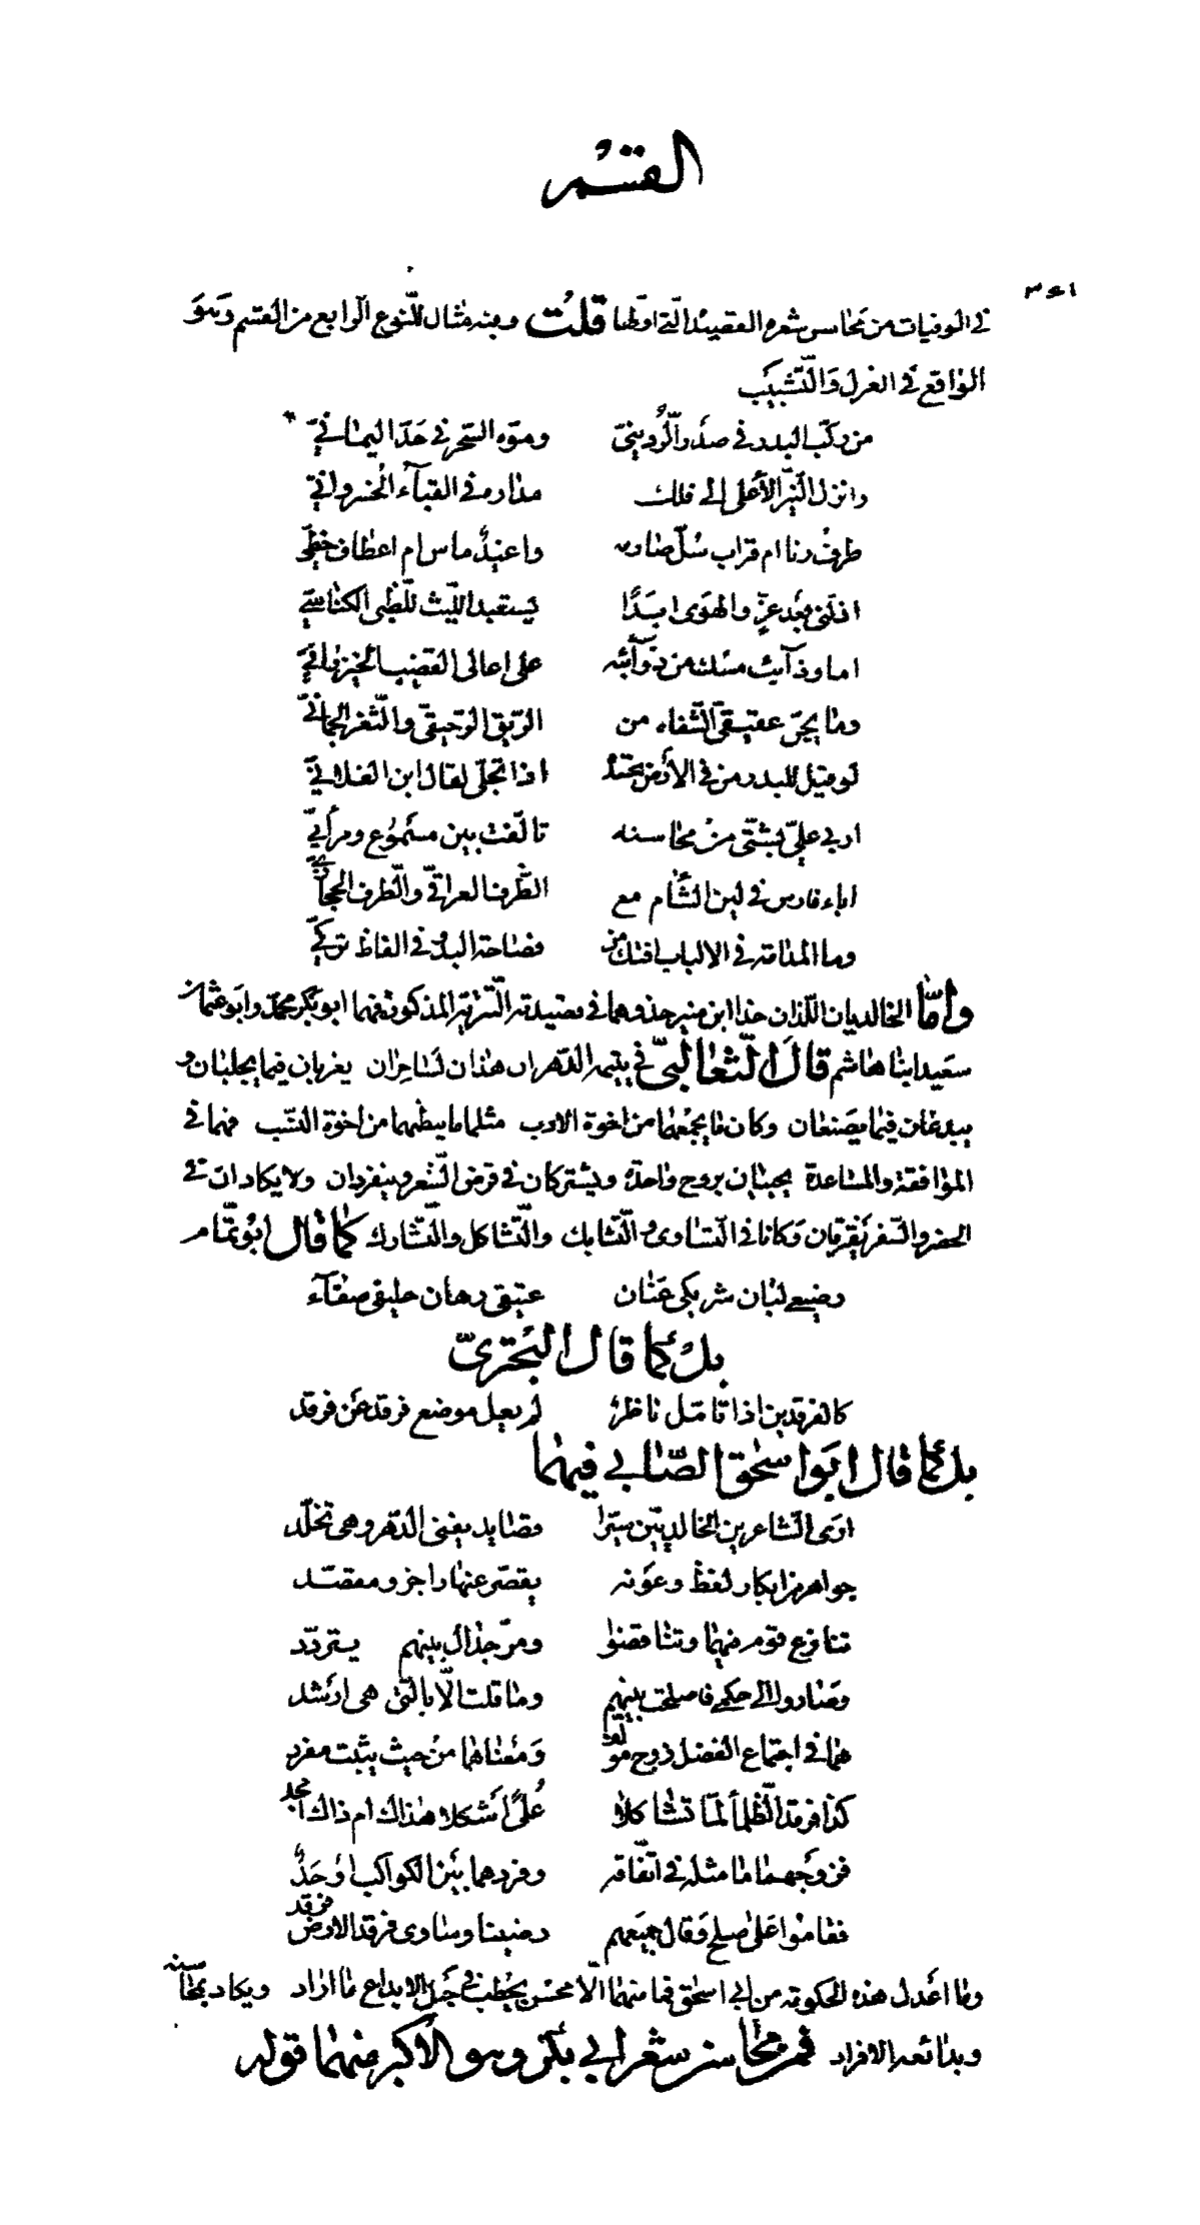 القسم
٣٤١
في الوفيات من محاسن شعره القصيدة التي اولها قلت وفيه مثال للنوع الرابع من القسم وهو
الواقع في الغزل والتشبيب
من ركب البدر في صدر الرديني وموه السحر في حد اليماني
وانزل النير الأعلى الى فلك مداره في القباء الخسرواني
طرف رنا ام قراب سل صارمه واغيد ماس ام اعطاف خطي
اذلني بعد عز والهوى ابدا يستعبد الليث للظبي الكناسي
اما وذائب مسك من ذوائبه على اعالى القضيب الخيزراني
وما يجن عقيقي الشفاه من الريق الرحيقي والثغر الجماني
لو قيل للبدر من في الأرض تحسده اذا تجلى لقال ابن الفلاني
اربى علي بشتى من محاسنه تالفت بين مسموع ومرأي
اباء فارس في لين الشأم مع الظرف العراقي والظرف الحجازي
وما المدامة في الالباب افتك من فصاحة البدو في الفاظ تركي
وأما الخالديان اللذان حذا ابن منير حذوهما في قصيدته التترية المذكورة فهما ابو بكر محمد وابو عثمان
سعيد ابنا هاشم قال الثعالبي في يتيمه الدهر ان هذان لشاعران يغربان فيما يجلبان و
يبدعان فيما يصنعان وكان ما يجمعهما من اخوة الادب مثلما ما ينظمهما من اخوة النسب فهما في
الموافقة والمساعدة يجيئان بروح واحدة ويشتركان في قرض الشعر وينفردان ولا يكادان في
الحضر والسفر يفترقان وكانا في التساوى والتشابك والتشاكل والتشارك كما قال ابو تمام
رضيعي لبان شريكى عنان عتيقي رهان حليفى صفاء
بل كما قال البحتري
كالفرقدين اذا تامل ناظر لم يعل موضع فرقد عن فرقد
بل كما قال ابو اسحق الصابي فيهما
ارى الشاعرين الخالديين سيرا قصايد يفنى الدهر وهى تخلد
جواهر من ابكار لفظ وعونه يقصر عنها راجز ومقصد
تنازع قوم فيهما وتناقضوا ومر جدال بينهم يتردد
وصاروا الى حكمي فاصلحت بينهم وما قلت الا بالتى هى ارشد
هما في اجتماع الفضل زوج مؤلف ومعناهما من حيث يثبت مفرد
كذا فرقدا الظلماء لما تشاكلا علىً اشكلا هذاك ام ذاك امجد
فزوجهما ما مثله في اتفاقه وفردهما بين الكواكب اوحد
فقاموا على صلح وقال جميعهم رضينا وساوى فرقد الارض فرقد
وما أعدل هذه الحكومة من ابي اسحق فما منهما الا محسن يخطب في حبل الابداع ما اراد ويكاد بمحاسنه
وبدائعه الافراد فمن محاسن شعر ابي بكر وهو الاكبر منهما قوله